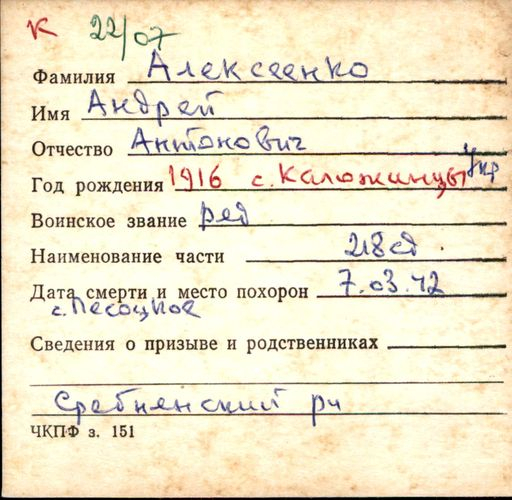 К 22/07
Фамилия Алексеенко
Имя Андрей
Отчество Антонович
Год рождения 1916 с. Калюжинцы Укр
Воинское звание ряд
Наименование части 218 сд.
Дата смерти и место похорон 7.03.42
с. Песоцкое
Сведения о призыве и родственниках
Сребнянский рн
ЧКПФ з. 151